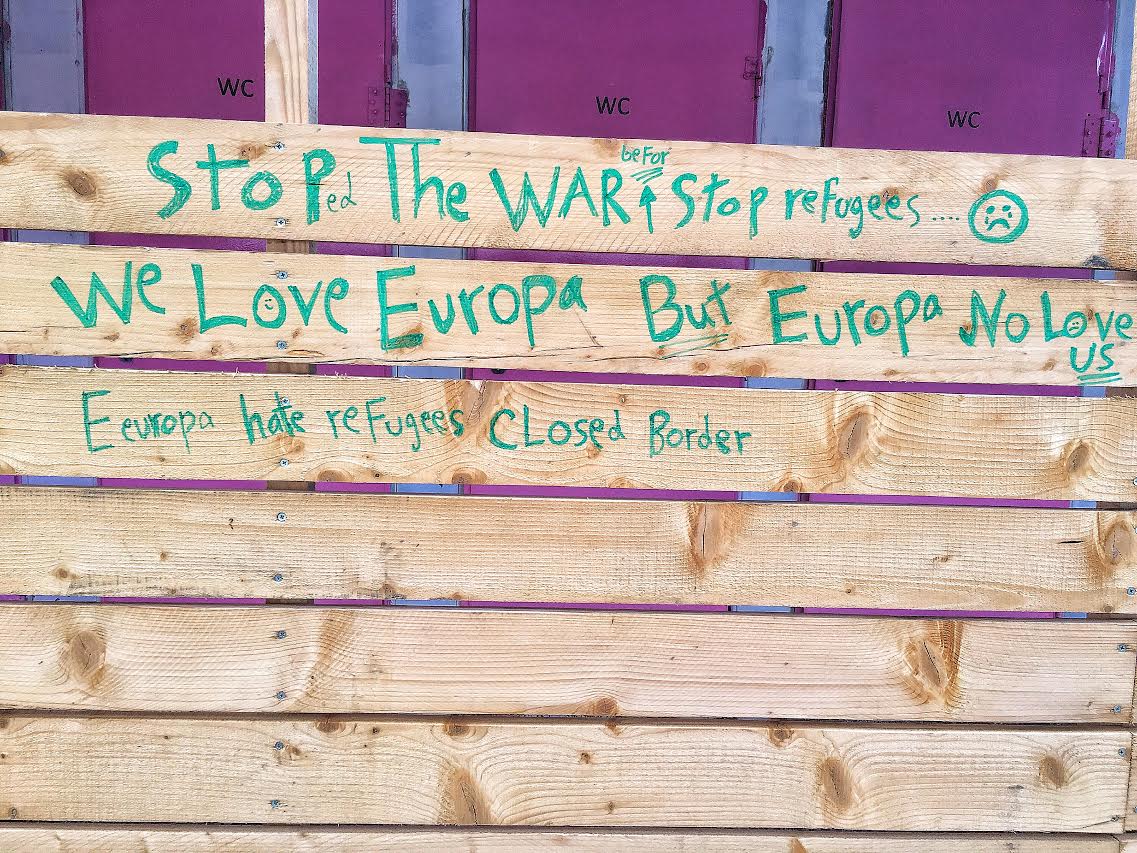 WC WC WC
Stoped The WAR befor Stop refugees....
We Love Europa But Europa No Love us
Eeuropa hate refugees closed Border